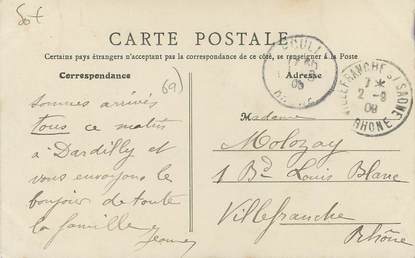 CARTE POSTALE
Certains pays étrangers n'acceptant pas la correspondance de ce côté, se renseigner à la Poste
Correspondance
Adresse
69)
sommes arrivés
tous ce matin
à Dardilly et
vous envoyons le
bonjour de toute
la famille
Jeanne
Madame
Molozay
1 Bd Louis Blanc
Villefranche
Rhône
VILLEFRANCHE S/ SAONE
7 *
2 - 9
09
RHONE